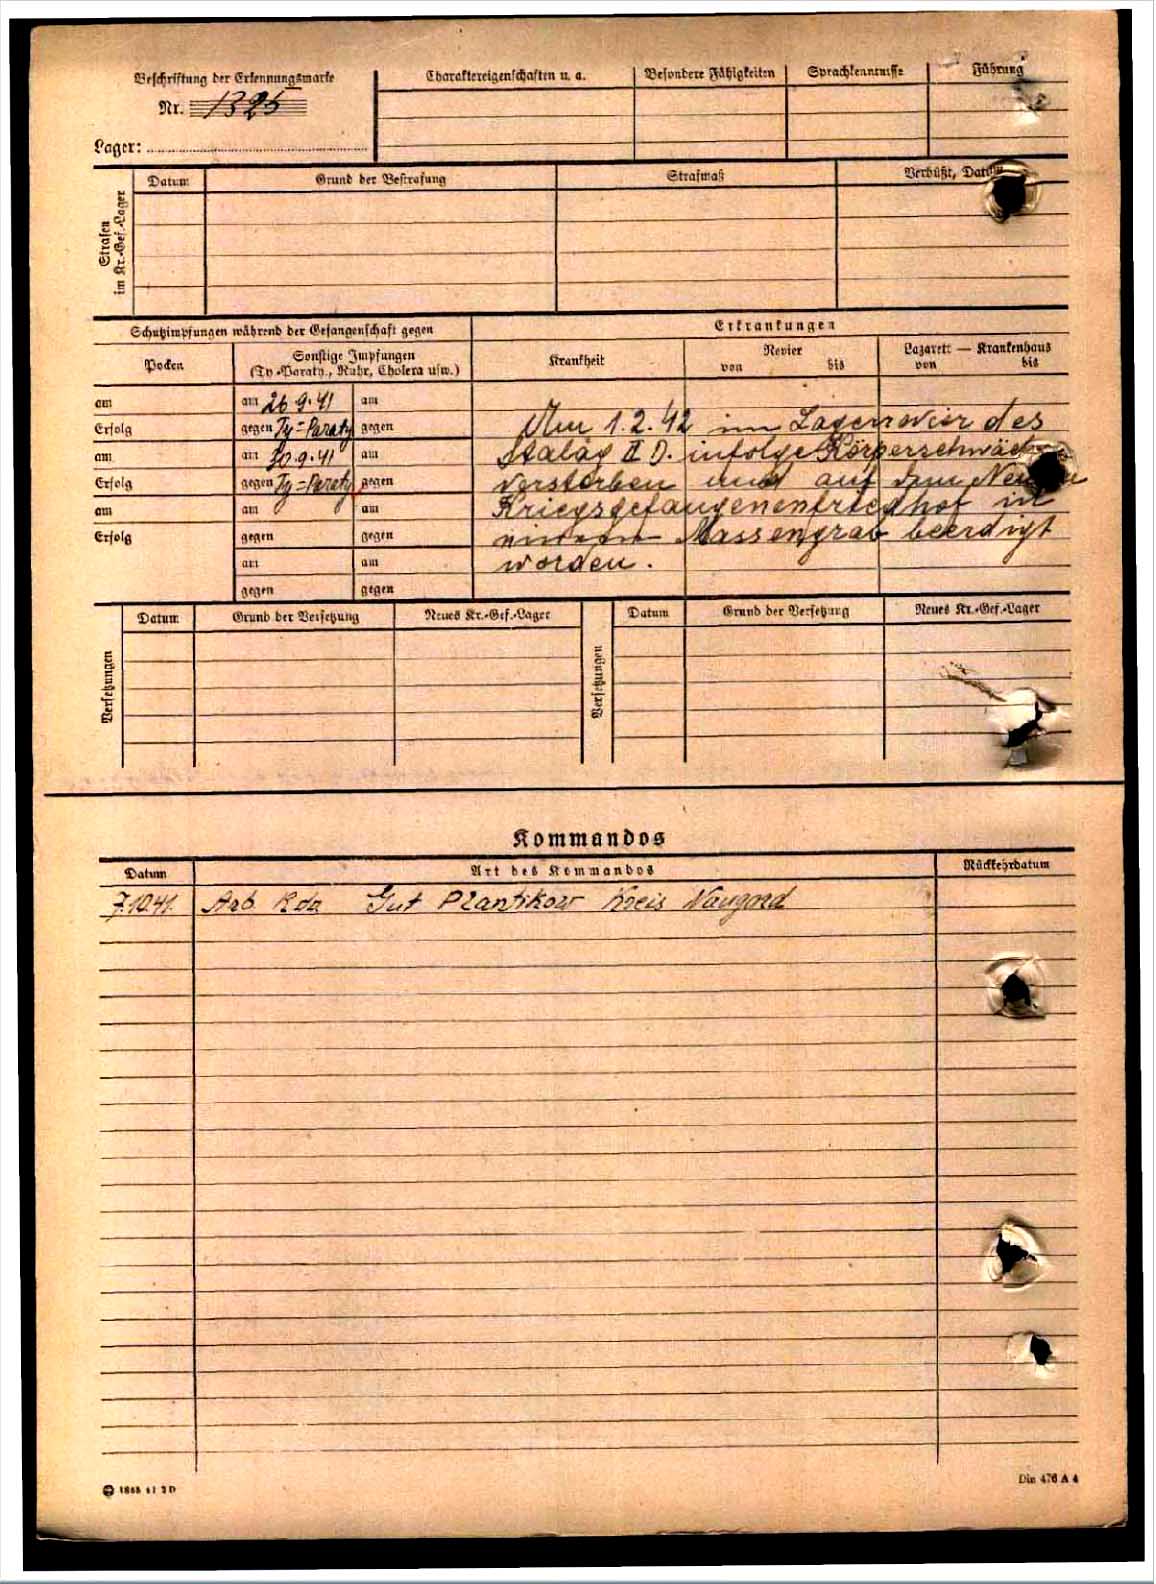 Beschriftung der Erkennungsmarke
Nr. 1325
Lager:
Charaktereigenschaften u. a. Besondere Fähigkeiten Sprachkenntnisse Führung
Strafen im Kr.-Gef.-Lager
Datum Grund der Bestrafung Strafmaß Verbüßt, Datum
Schutzimpfungen während der Gefangenschaft gegen
Erkrankungen
Pocken
Sonstige Impfungen
(Ty.-Paraty., Ruhr, Cholera usw.)
Krankheit
Revier
von bis
Lazarett — Krankenhaus
von bis
am am 26.9.41 am
Erfolg gegen Ty=Paraty gegen
am am 30.9.41 am
Erfolg gegen Ty=Paraty gegen
am am am
Erfolg gegen gegen
am am
gegen gegen
Am 1.2.42 im Lagerrevier des
Stalag II D. infolge Körperschwäche
verstorben und auf dem Neuen
Kriegsgefangenenfriedhof in
einem Massengrab beerdigt
worden.
Versetzungen
Datum Grund der Versetzung Neues Kr.-Gef.-Lager
Versetzungen
Datum Grund der Versetzung Neues Kr.-Gef.-Lager
Kommandos
Datum Art des Kommandos Rückkehrdatum
7.10.41. Arb. Kdo Gut Plantikow Kreis Naugard
Din 476 A 4